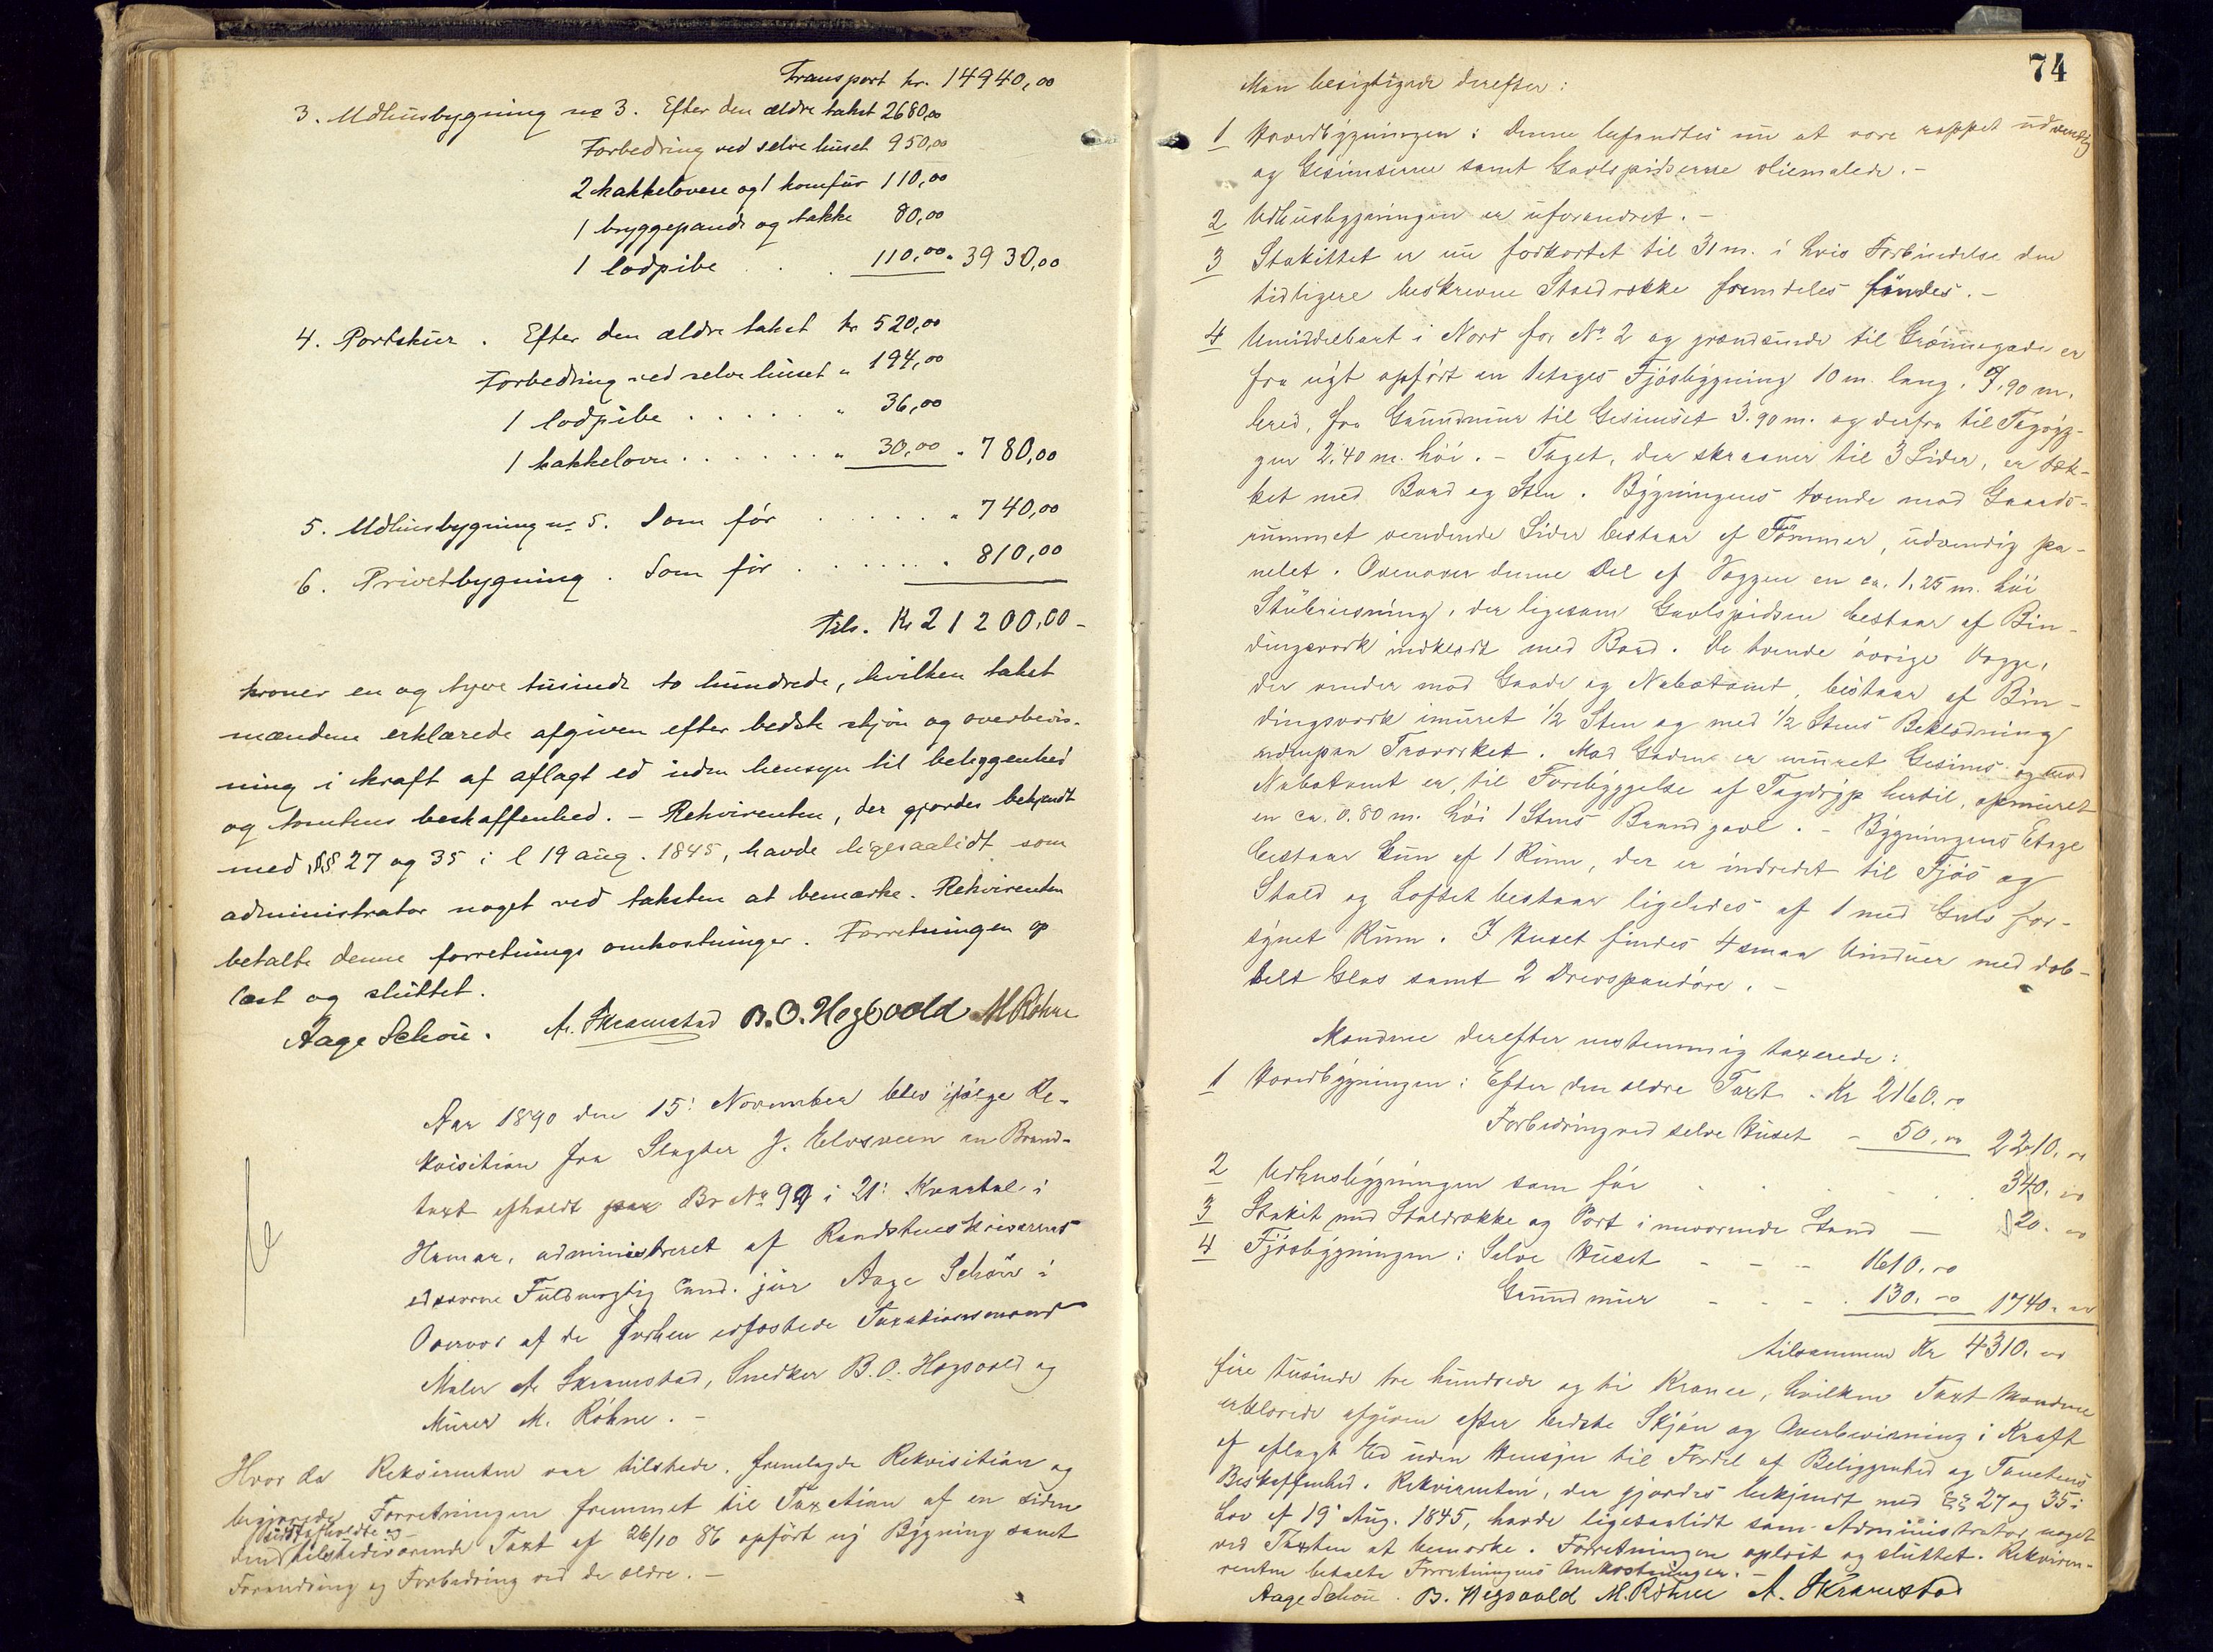 Transport kr. 14940,00
3. Udhusbygning no 3. Efter den ældre takst 2680,00
Forbedring ved selve huset 950,00
2 kakkelovne og 1 komfur 110,00
1 bryggepande og takke 80,00
1 lodpibe . . . 110,00 " 3930,00
4. Portskur . Efter den ældre takst kr 520,00
Forbedring ved selve huset " 194,00
1 lodpibe . . . . . " 36,00
1 kakkelovn . . . . . . " 30,00 " 780,00
5. Udhusbygning no 5. Som før . . . . . " 740,00
6. Privetbygning . Som før . . . . . . " 810,00
Tils. Kr 21200,00 -
kroner en og tyve tusinde to hundrede, hvilken takst
mændene erklærede afgiven efter bedste skjøn og overbevis-
ning i kraft af aflagt ed uden hensyn til beliggenhed
og tomtens beskaffenhed. - Rekvirenten, der gjordes bekjendt
med §§ 27 og 35 i l 19 aug. 1845, havde ligesaalidt som
administrator noget ved taksten at bemærke. Rekvirenten
betalte denne forretnings omkostninger. Forretningen op
læst og sluttet.
Aage Schou. A. Skramstad B.O. Hegvold M Röhne
Aar 1890 den 15' November blev ifølge Re-
kvisition fra Slagter J. Elvsveen en Brand-
taxt afholdt paa Br No 99 i 21' Kvartal i
Hamar, administreret af Raadstueskriverens
edsvorne Fuldmægtig Cand. jur Aage Schou i
Overvær af de forhen edfæstede Taxationsmænd
Maler A Skramstad, Snedker B. O. Hegvold og
Murer M. Röhne. -
Hvor da Rekvirenten var tilstede, fremlagde Rekvisition og
begjærede Forretningen fremmet til Taxation af en siden
sidstafholdte og
den tilstedeværende Taxt af 26/10 86 opført ny Bygning samt
Forandring og Forbedring ved de ældre. -
74
Man besigtigede derefter:
1 Hovedbygningen: Denne befandtes nu at være rappet udvendig
og Gesimserne samt Gavlspidserne oliemalede. -
2 Udhusbygningen er uforandret. -
3 Stakittet er nu forkortet til 31 m. i hvis Forbindelse den
tidligere beskrevne Staldrække fremdeles findes. -
4 Umiddelbart i Nord for No 2 og grændsende til Grønnegade er
fra nyt opført en 1 etages Fjøsbygning 10 m. lang, 7,90 m.
bred, fra Grundmur til Gesimset 3.90 m. og derfra til Tagryg-
gen 2.40 m. høi. - Taget, der skraaner til 3 Sider, er tæk-
ket med Bord og Sten. Bygningens tvende mod Gaards-
rummet vendende Sider bestaar af Tømmer, udvendig pa-
nelet. Ovenover denne Del af Væggen en ca. 1,25 m. høi
Stubreisning, der ligesom Gavlspidsen bestaar af Bin-
dingsværk indklædt med Bord. De tvende øvrige Vægge,
der vender mod Gade og Nabotomt, bestaar af Bin-
dingsværk imuret 1/2 Sten og med 1/2 Stens Beklædning
udenpaa Træværket. Mod Gaden er muret Gesims og mod
Nabotomt er, til Forebyggelse af Tagdryp hertil, opmuret
en ca. 0.80 m. høi 1 Stens Brandgavl. - Bygningens Etage
bestaar kun af 1 Rum, der er indredet til Fjøs og
Stald og Loftet bestaar ligeledes af 1 med Gulv for-
synet Rum. I Huset findes 4 smaa Vinduer med dob-
belt Glas samt 2 Drevspandøre. -
Mændene derefter enstemmig taxerede:
1 Hovedbygningen: Efter den ældre Taxt - Kr 2160.00
Forbedring ved selve Huset - 50,00 2210.00
2 Udhusbygningen som før . . . . . 340.00
3 Stakit med Staldrække og Port i nuværende Stand — 20.00
4 Fjøsbygningen: Selve Huset - - - 1610.00
Grundmur - - - 130.00 1740.00
tilsammen Kr 4310.00
fire tusinde tre hundrede og ti Kroner, hvilken Taxt Mændene
erklærede afgiven efter bedste Skjøn og Overbevisning i Kraft
af aflagt Ed uden Hensyn til Fordel af Beliggenhed og Tomtens
Beskaffenhed. Rekvirenten, der gjordes bekjendt med §§ 27 og 35 i
Lov af 19' Aug. 1845, havde ligesaalidt som Administrator noget
ved Taxten at bemærke. Forretningen oplæst og sluttet. Rekviren-
renten betalte Forretningens Omkostninger. -
Aage Schou. B. Hegvold M. Röhne A. Skramstad